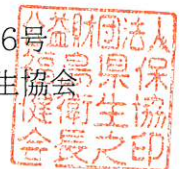 6号
生協会
公益財団法人
福島県保
健衛生協
会長之印